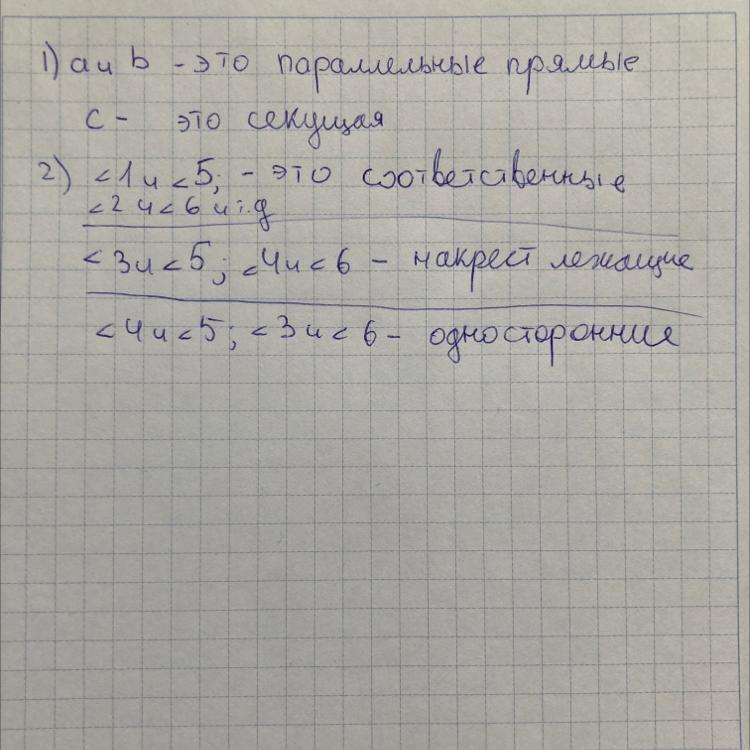 1) a и b - это параллельные прямые
c - это секущая
2) <1 и <5; - это соответственные
<2 и <6 и т.д
<3 и <5; <4 и <6 - накрест лежащие
<4 и <5; <3 и <6 - односторонние